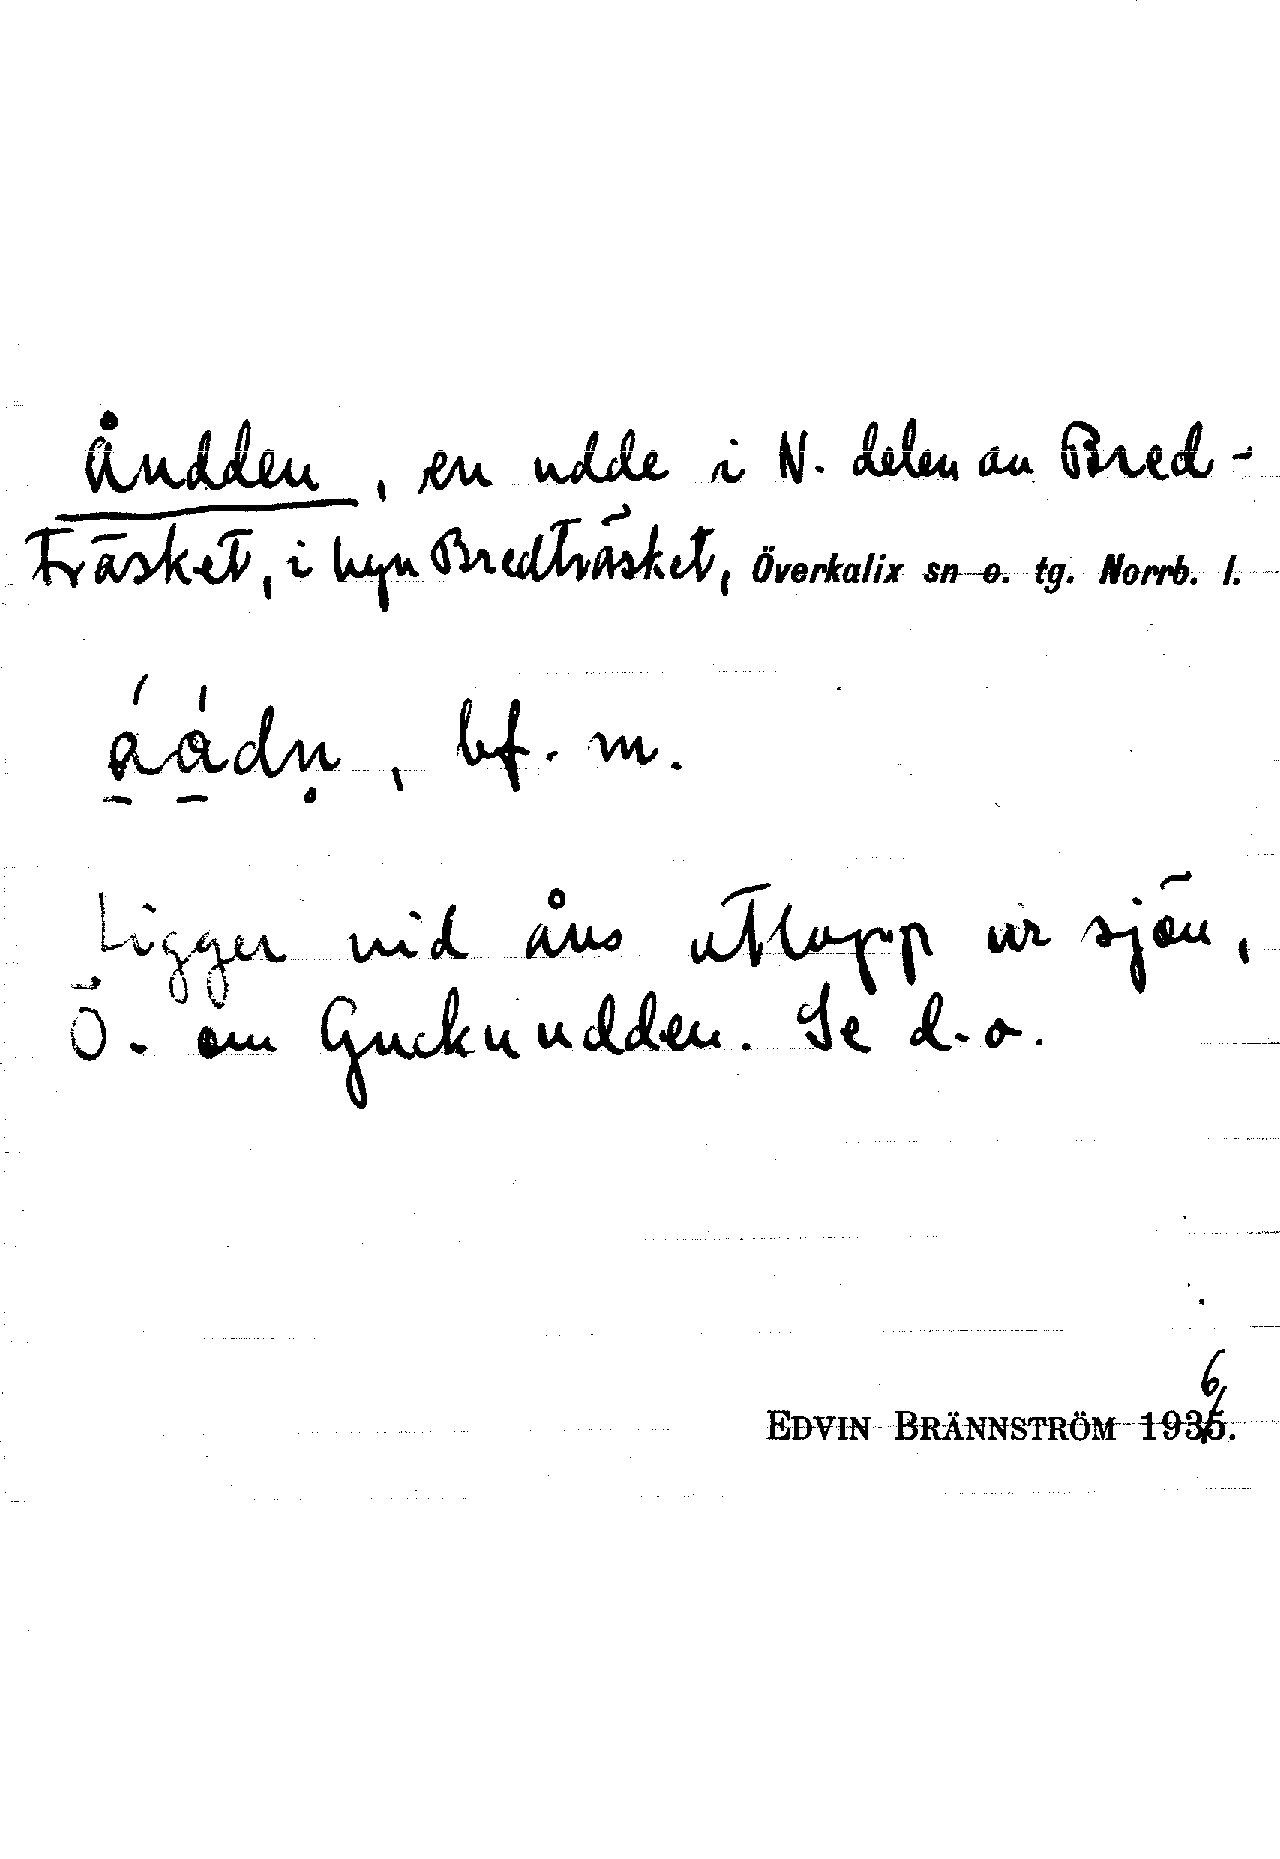 Åudden, en udde i N. delen av Bred-
träsket, i byn Bredträsket, Överkalix sn o. tg. Norrb. l.
bf. m.
Ligger vid åns utlopp ur sjön,
Ö. om Guckuudden. Se d.o.
6
EDVIN BRÄNNSTRÖM 1935.